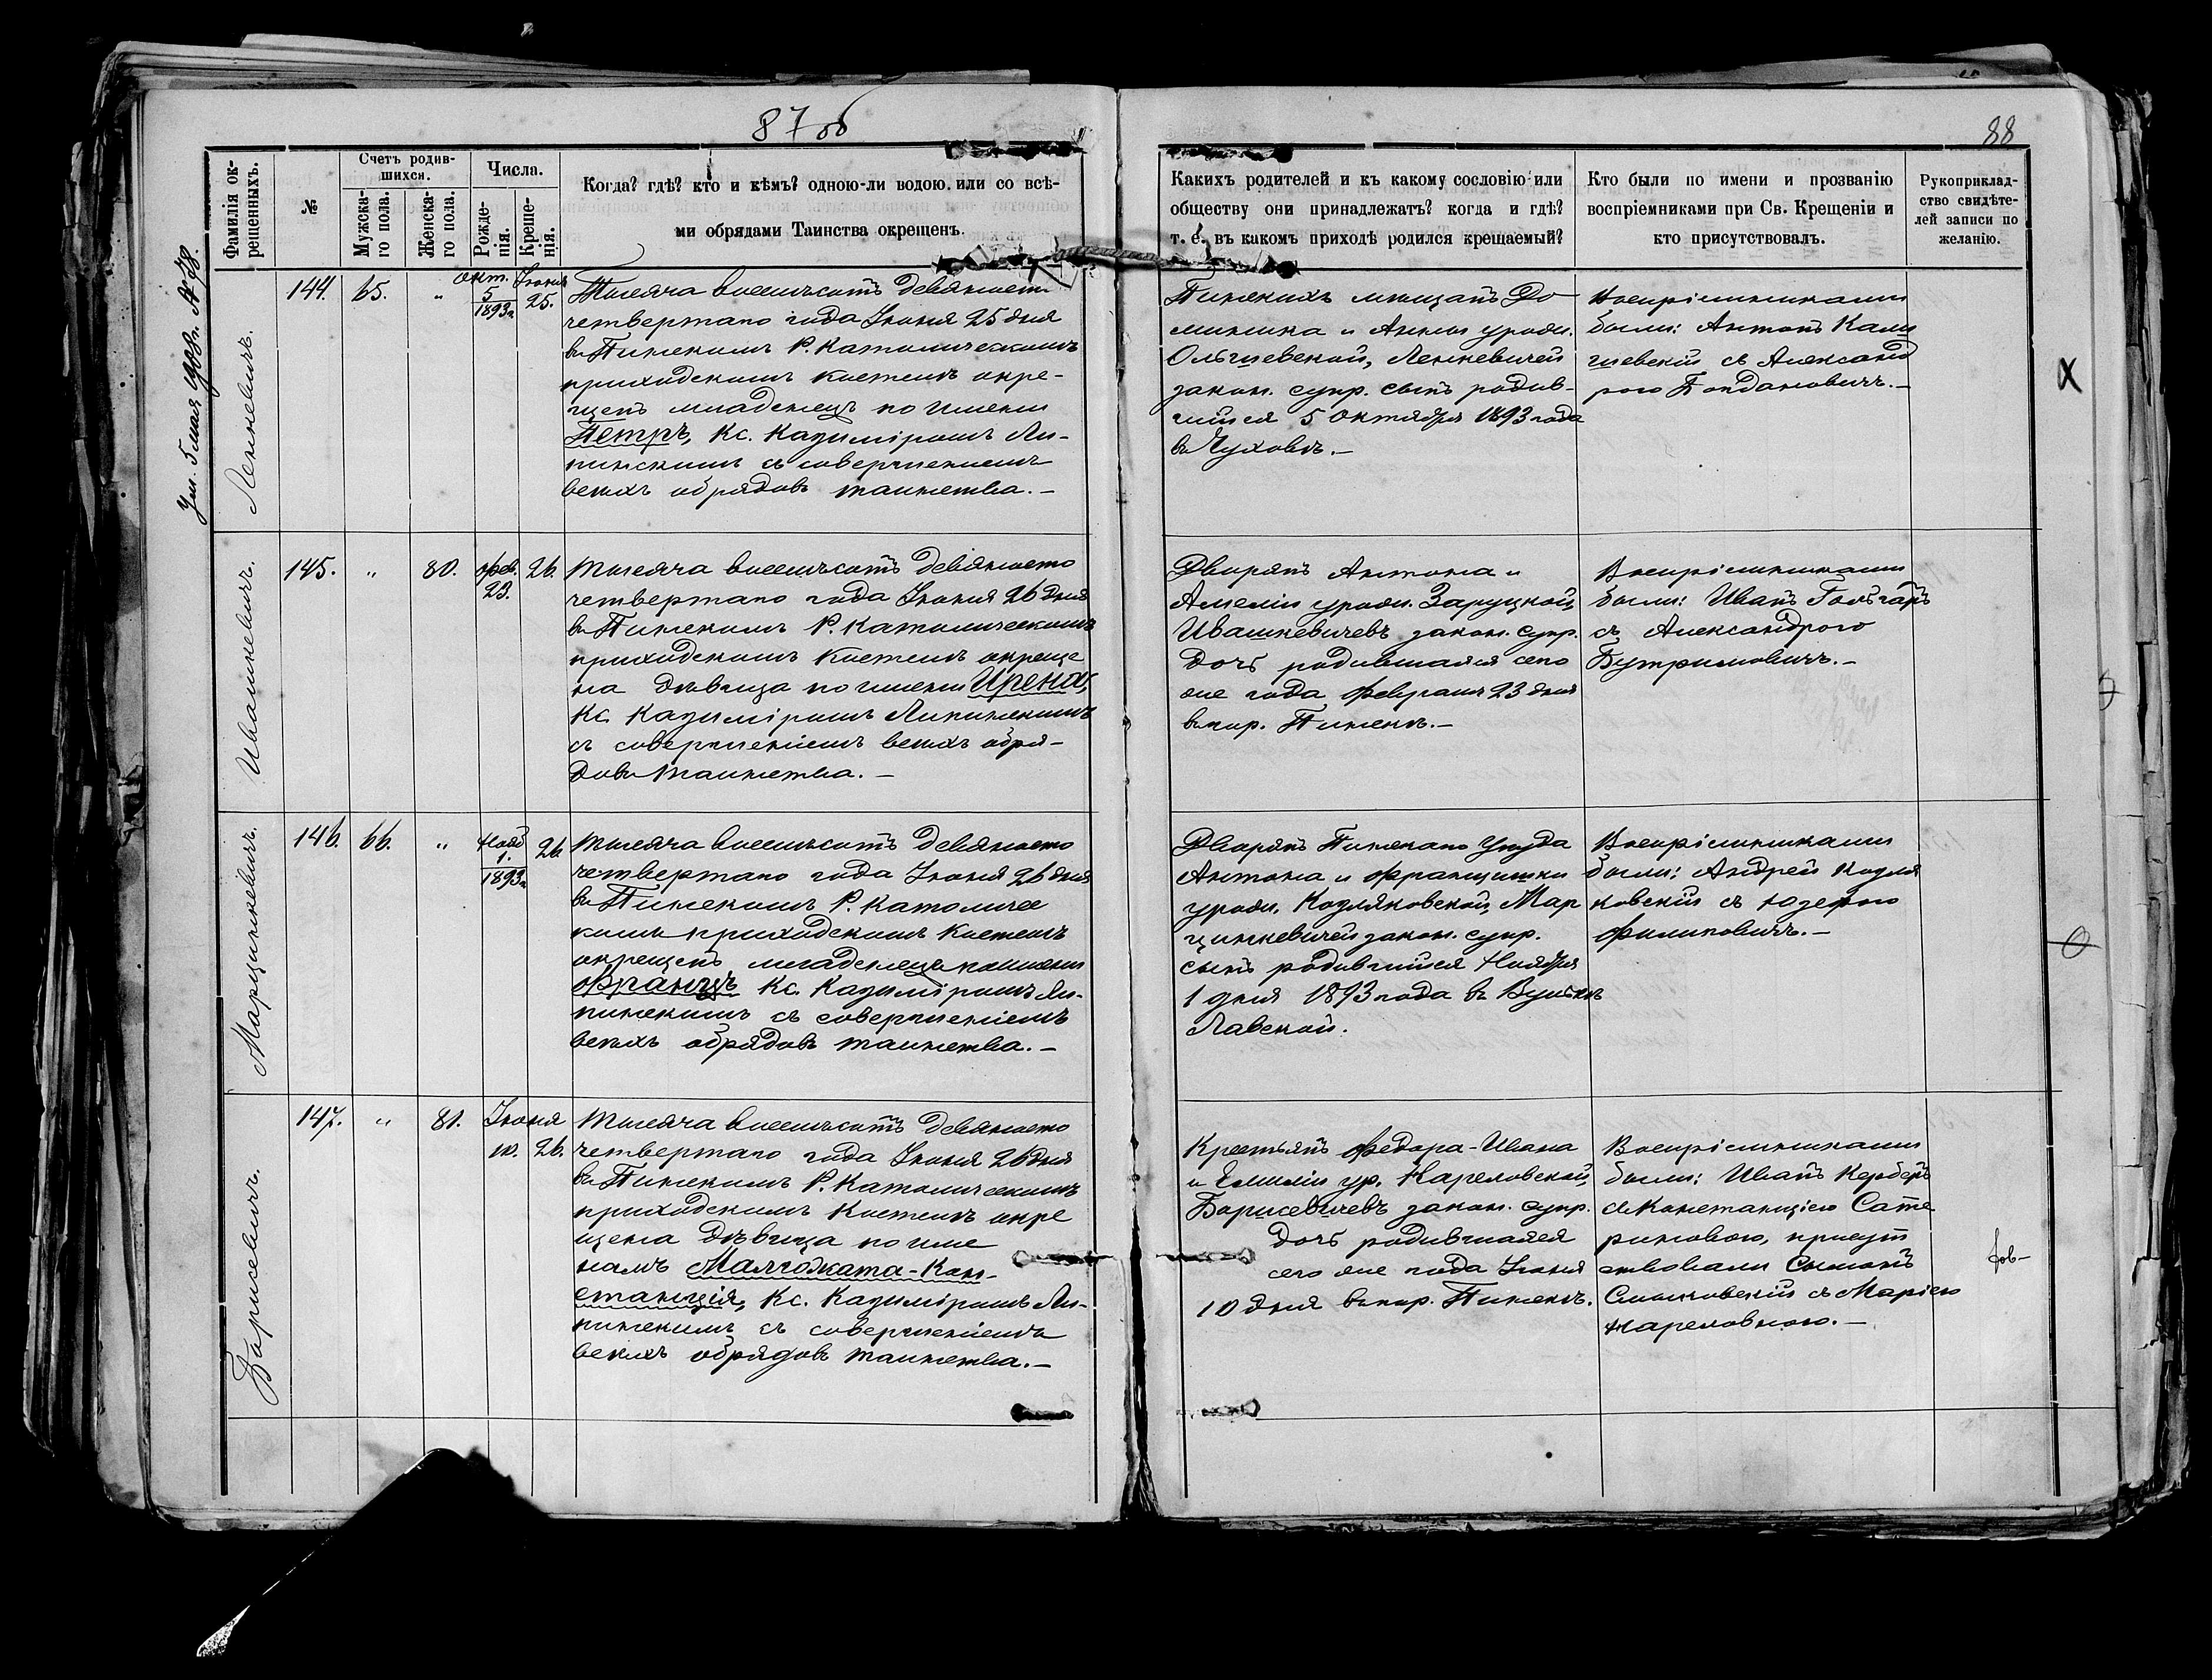 87 об
88
Фамилія ок-
рещенныхъ.
№
Счетъ родив-
шихся.
Мужска-
го пола.
Женска-
го пола.
Числа.
Рожде-
нія.
Креще-
нія.
Когда? гдѣ? кто и кѣмъ? одною-ли водою или со всѣ-
ми обрядами Таинства окрещенъ.
Какихъ родителей и къ какому сословію или
обществу они принадлежатъ? когда и гдѣ?
т. е. въ какомъ приходѣ родился крещаемый?
Кто были по имени и прозванію
воспріемниками при Св. Крещеніи и
кто присутствовалъ.
Рукоприклад-
ство свидѣте-
лей записи по
желанію.
Ленкевичъ.
144.
65.
"
Окт.
5
1893г.
Іюня
25.
Тысяча восемьсотъ девяносто
четвертаго года Іюня 25 дня
въ Пинскомъ Р. Католическомъ
приходскомъ костелѣ окре-
щенъ младенецъ по имени
Петръ, Кс. Казиміромъ Ли-
пинскимъ съ совершеніемъ
всѣхъ обрядовъ таинства.—
Пинскихъ мѣщанъ До
миника и Анны урожд.
Ольшевской, Ленкевичей
закон. супр. сынъ родив-
шійся 5 Октября 1893 года
въ Чуховѣ.—
Воспріемниками
были: Антонъ
съ Александ
рою Богдановичъ.—
X
Ивашкевичъ.
145.
"
80.
Фев.
23.
26.
Тысяча восемьсотъ девяносто
четвертаго года Іюня 26 дня
въ Пинскомъ Р. Католическомъ
приходскомъ костелѣ окреще
на дѣвица по имени Ирена,
Кс. Казиміромъ Липинскимъ
съ совершеніемъ всѣхъ обря-
довъ таинства.—
Дворянъ Антона и
Амеліи урожд. Заруцкой,
Ивашкевичевъ закон. супр.
дочь родившаяся сего
же года Февраля 23 дня
въ гор. Пинскѣ.—
Воспріемниками
были: Иванъ
съ Александрою
Бутримовичъ.—
Марцинкевичъ.
146.
66.
"
Нояб.
1.
1893г.
26.
Тысяча восемьсотъ девяносто
четвертаго года Іюня 26 дня
въ Пинскомъ Р. Католичес
комъ приходскомъ костелѣ
окрещенъ младенецъ по имени
Францъ Кс. Казиміромъ Ли-
пинскимъ съ совершеніемъ
всѣхъ обрядовъ таинства.—
Дворянъ Пинскаго Уѣзда
Антона и Францишки
урожд. Козляковской, Мар
цинкевичей закон. супр.
сынъ родившійся Ноября
1 дня 1893 года въ Вулькѣ
Лавской.
Воспріемниками
были: Андрей Козля
ковскій съ Юзефою
Филиповичъ.—
Борисевичъ.
147.
"
81.
Іюня
10.
26.
Тысяча восемьсотъ девяносто
четвертаго года Іюня 26 дня
въ Пинскомъ Р. Католическомъ
приходскомъ костелѣ окре
щена дѣвица по име
намъ Малгожата-Кон-
станція, Кс. Казиміромъ Ли-
пинскимъ съ совершеніемъ
всѣхъ обрядовъ таинства.—
Крестьянъ Федора-Ивана
и Емиліи ур. Кареловской,
Борисевичевъ закон. супр.
дочь родившаяся
сего же года Іюня
10 дня въ гор. Пинскѣ.
Воспріемниками
были: Иванъ Керберъ
съ Констанціею Сате
риновою, присут
ствовали Сымонъ
съ Маріею
Кареловною.—